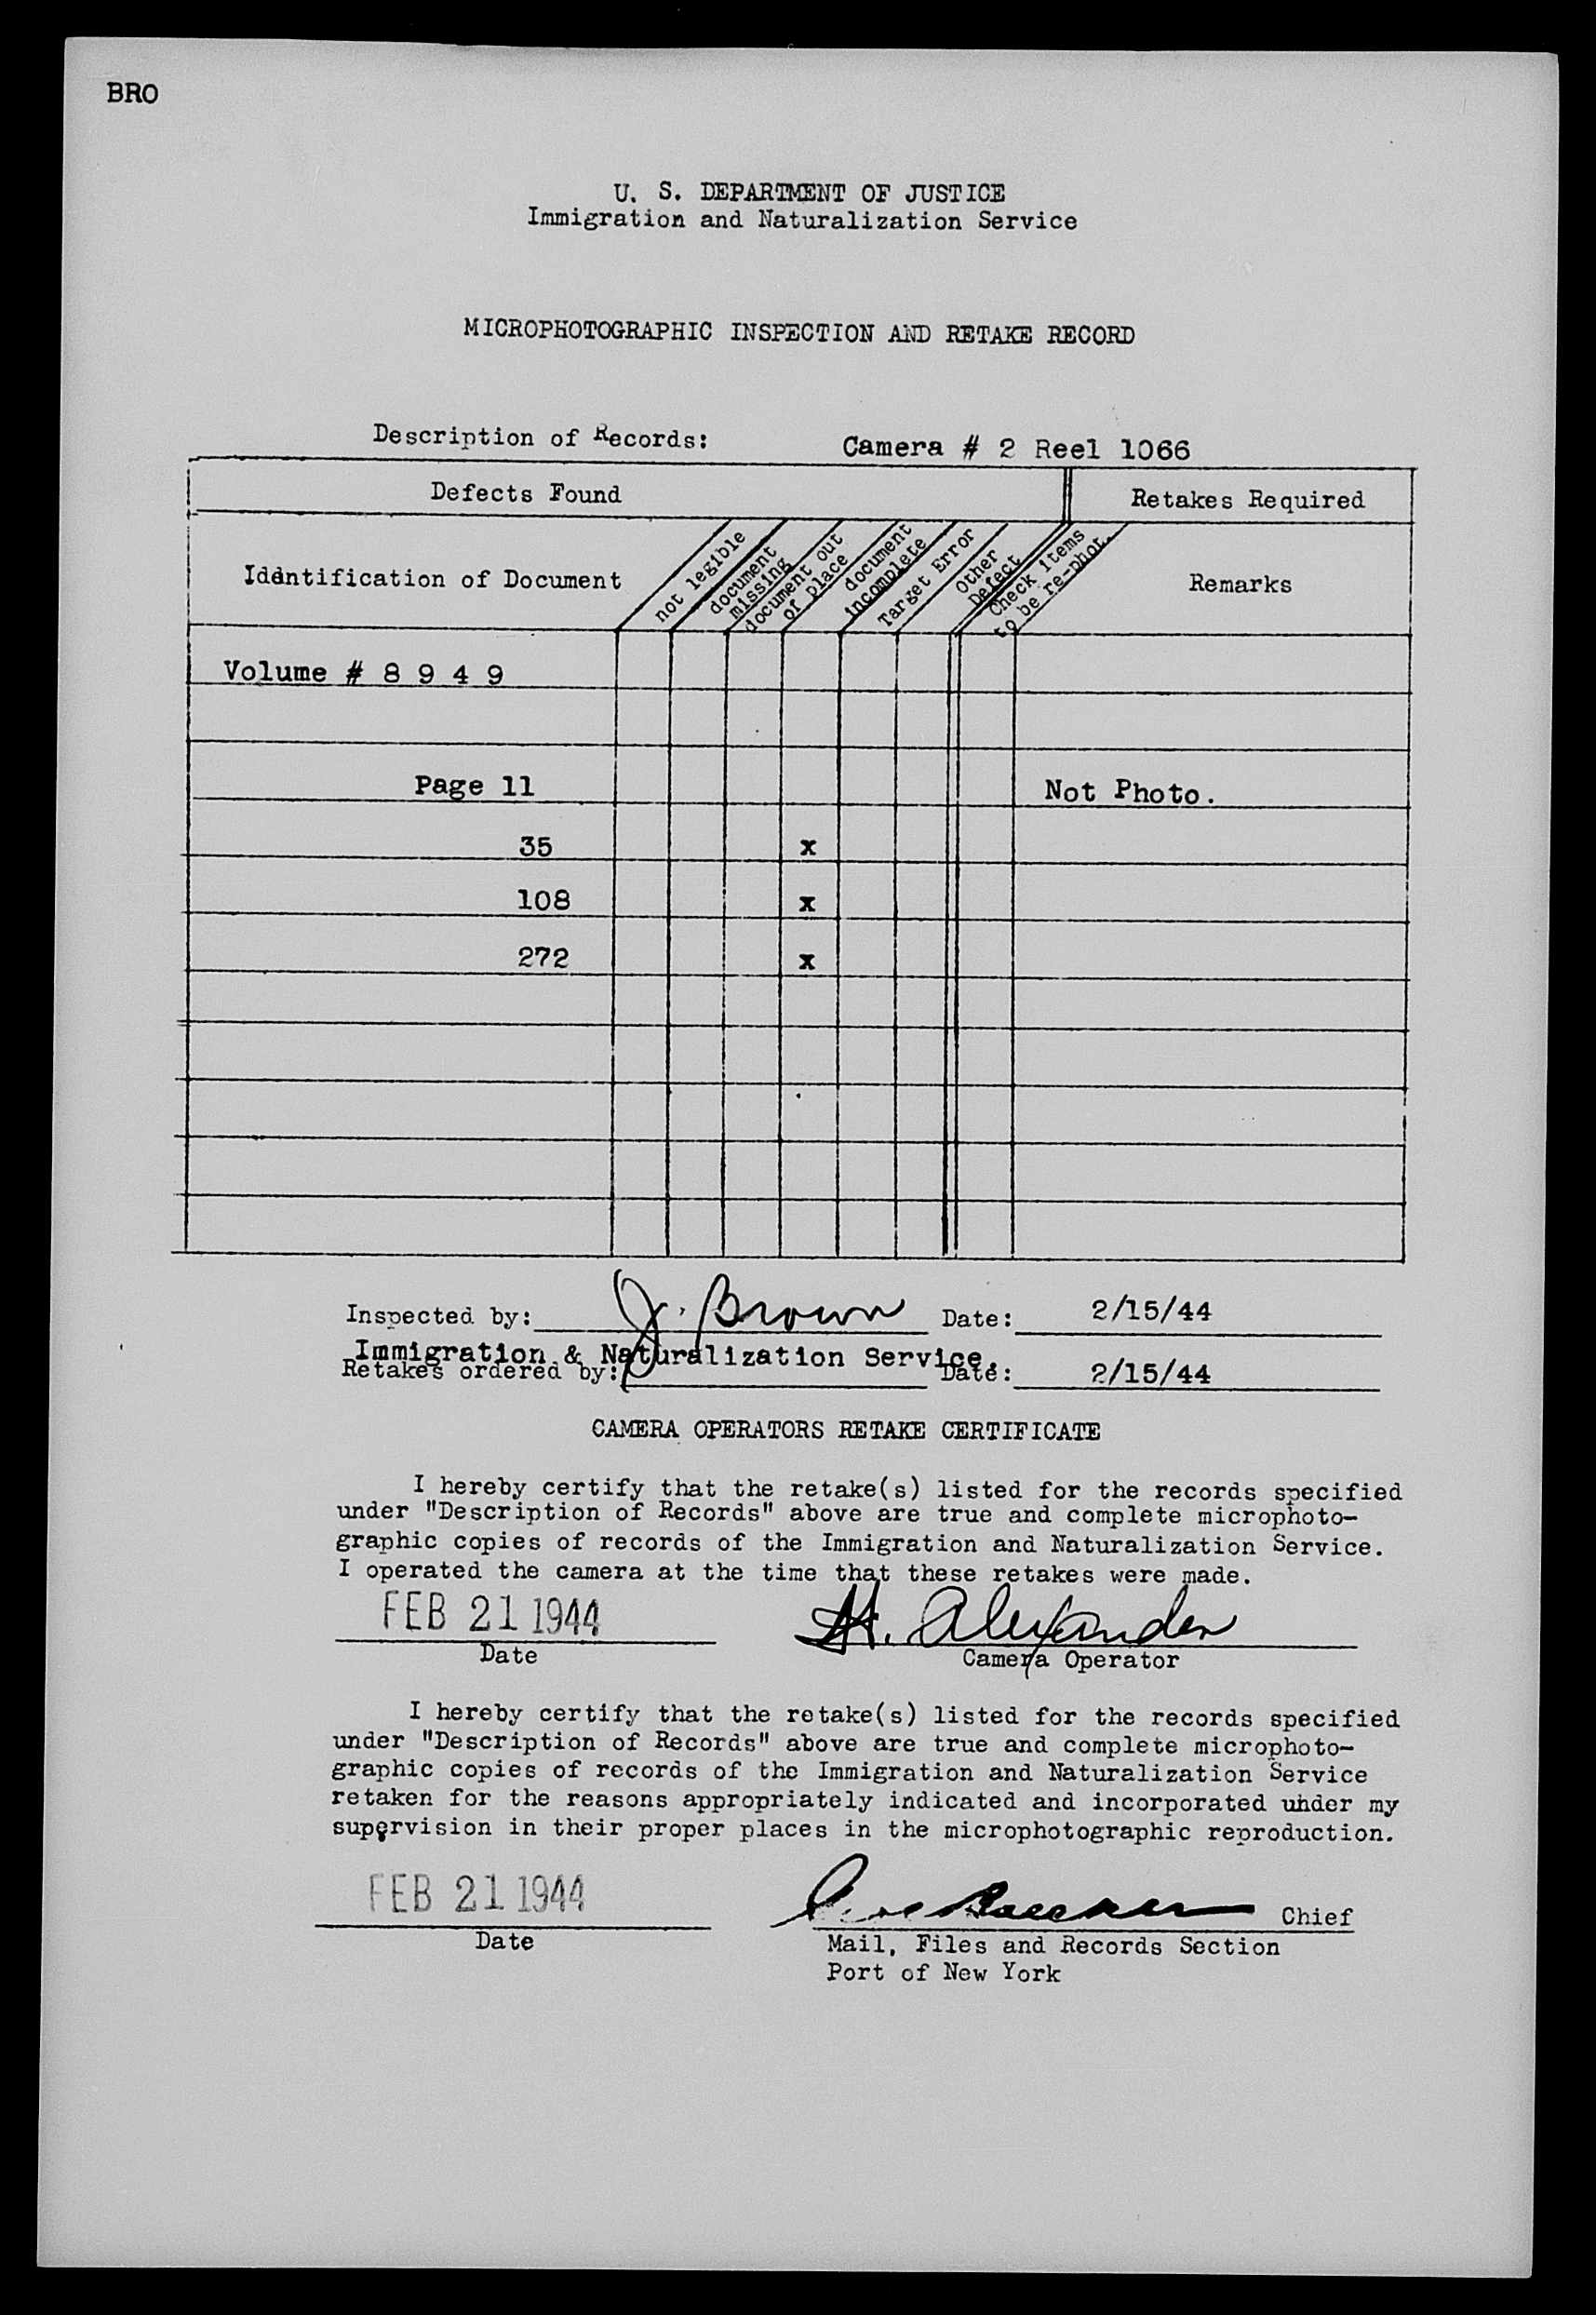 BRO
U. S. DEPARTMENT OF JUSTICE
Immigration and Naturalization Service
MICROPHOTOGRAPHIC INSPECTION AND RETAKE RECORD
Description of Records: Camera # 2 Reel 1066
Defects Found Retakes Required
Idāntification of Document
not legible
document missing
document out of place
document incomplete
Target Error
Other Defect
Check items to be re-phot.
Remarks
Volume # 8 9 4 9
Page 11 Not Photo.
35 x
108 x
272 x
Inspected by: J. Brown Date: 2/15/44
Immigration & Naturalization Service.
Retakes ordered by: Date: 2/15/44
CAMERA OPERATORS RETAKE CERTIFICATE
I hereby certify that the retake(s) listed for the records specified
under "Description of Records" above are true and complete microphoto-
graphic copies of records of the Immigration and Naturalization Service.
I operated the camera at the time that these retakes were made.
FEB 21 1944 H. Alexander
Date Camera Operator
I hereby certify that the retake(s) listed for the records specified
under "Description of Records" above are true and complete microphoto-
graphic copies of records of the Immigration and Naturalization Service
retaken for the reasons appropriately indicated and incorporated uhder my
supervision in their proper places in the microphotographic reproduction.
FEB 21 1944 Chief
Date Mail, Files and Records Section
Port of New York